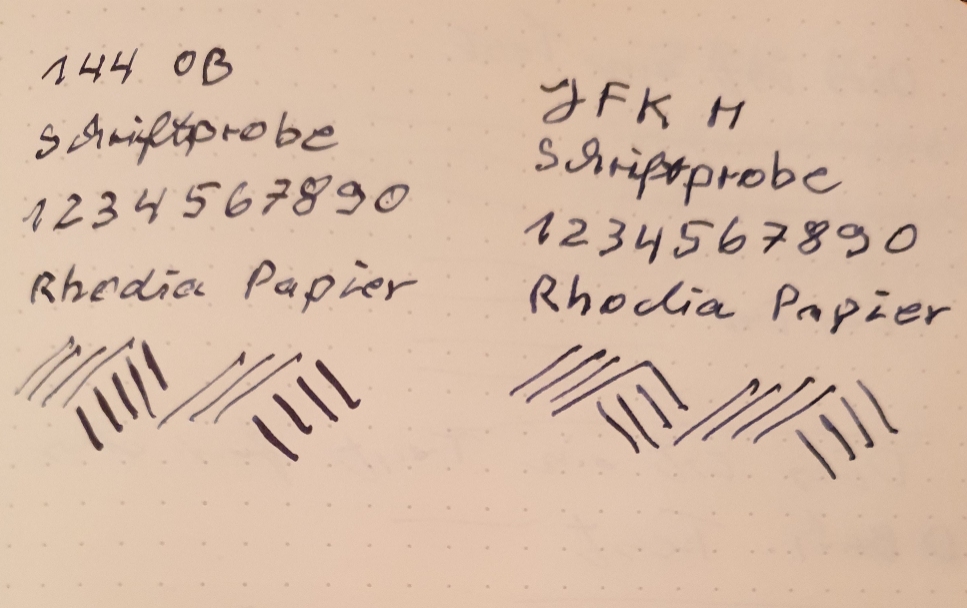 144 OB
Schriftprobe
1234567890
Rhodia Papier
JFK M
Schriftprobe
1234567890
Rhodia Papier